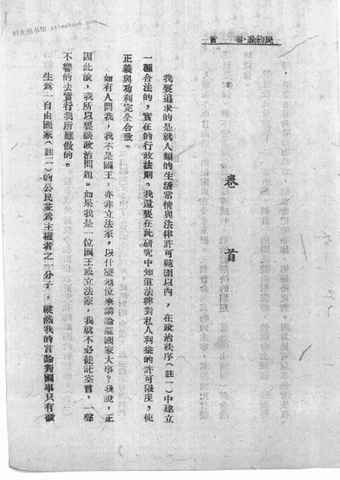 民約論·卷首
卷首
我要追求的是就人類的生活常情與法律許可範圍以內,在政治秩序(註一)中建立
一種合法的,實在的行政法則。我還要在此研究中知道法律對私人利益的許可限度,使
正義與功利完全合致。
如有人問我,我不是國王,亦非立法家,以什麼地位來講論這國家大事?我說,正
因此故,我所以要談政治問題。如果我是一位國王或立法家,我就不必徒託空言,一聲
不響的去實行我所應做的。
生為一自由國家(註一)的公民並為主權者之一分子,縱然我的言論對國事只有微